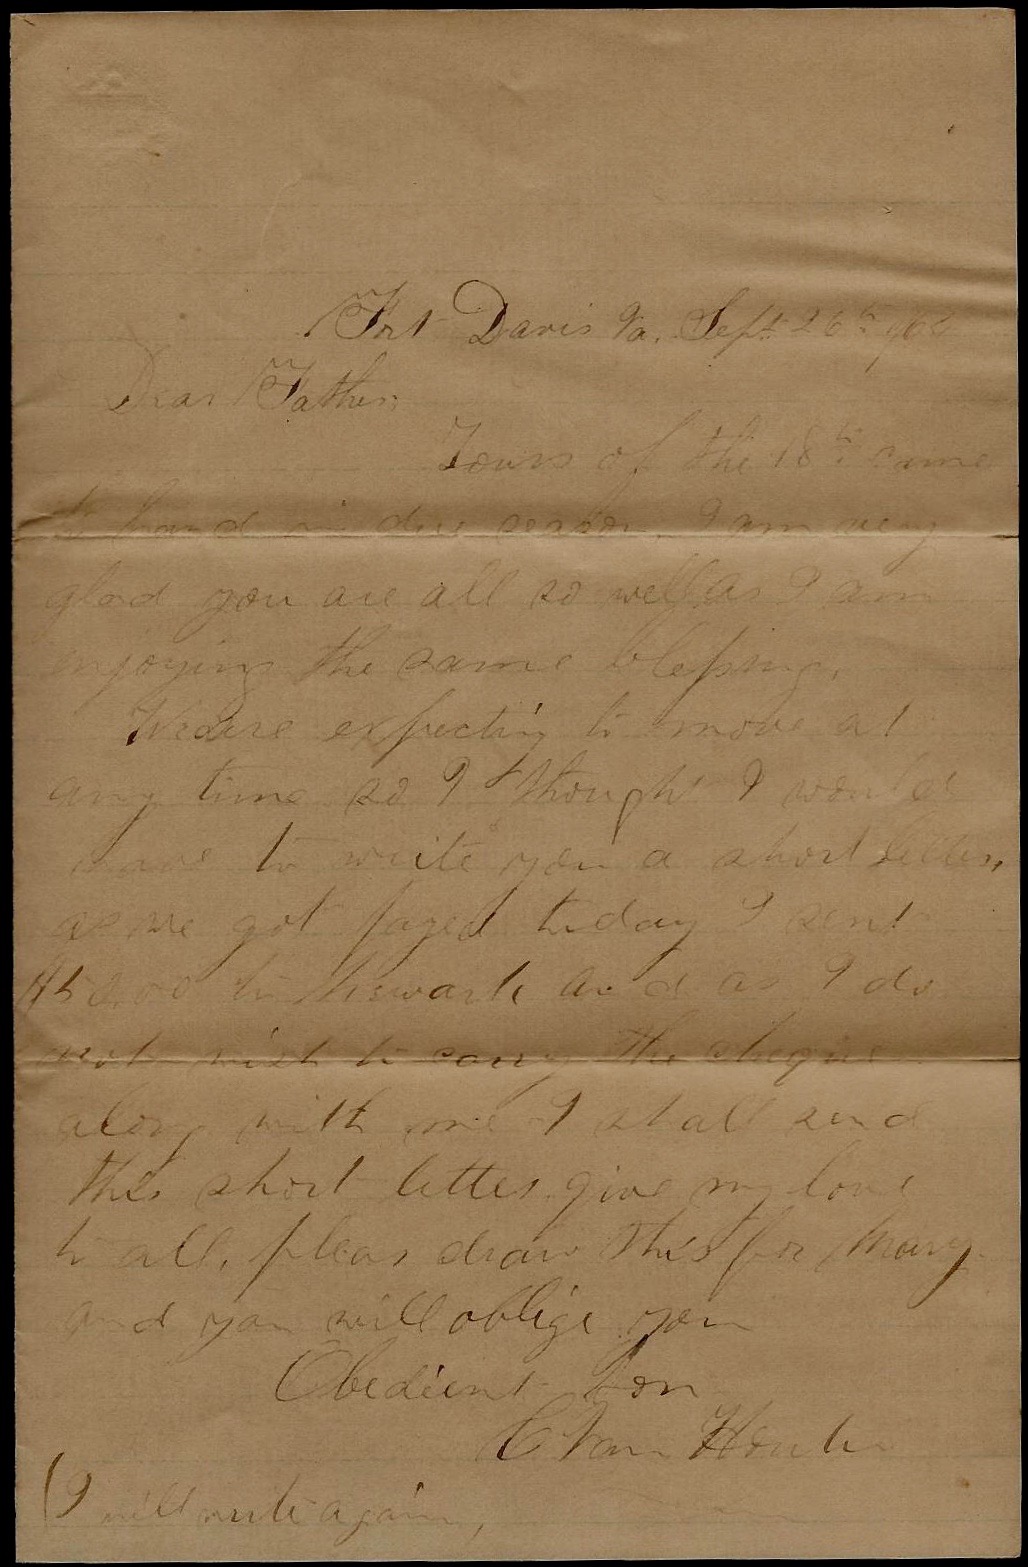 Fort Davis Va. Sept 26th /64
Dear Father
Yours of the 18th came
to hand in due season. I am very
glad you are all so well as I am
enjoying the same blessing.
We are expecting to move at
any time so I thought I would
have to write you a short letter,
as we got payed today I sent
to Newark and as I do
not wish to carry the cheque
along with me I shall send
this short letter. give my love
to all. pleas draw this for Mary
and you will oblige your
Obedient Son
C Van Houten
(I will write again,